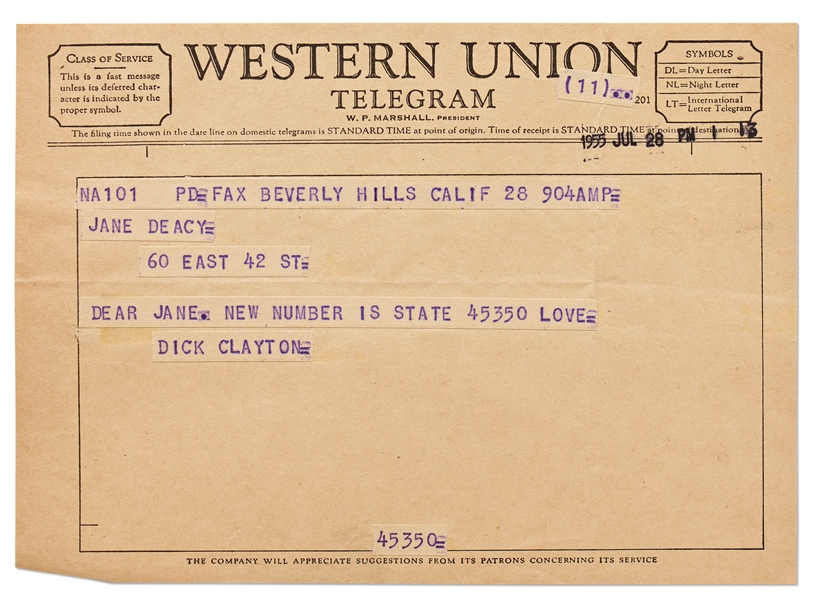 CLASS OF SERVICE
This is a fast message
unless its deferred char-
acter is indicated by the
proper symbol.
WESTERN UNION
TELEGRAM
W. P. MARSHALL, PRESIDENT
(11)..
201
SYMBOLS
DL=Day Letter
NL=Night Letter
LT=International Letter Telegram
The filing time shown in the date line on domestic telegrams is STANDARD TIME at point of origin. Time of receipt is STANDARD TIME at point of destination
1955 JUL 28 PM 1 13
NA101 PD=FAX BEVERLY HILLS CALIF 28 904AMP=
JANE DEACY=
60 EAST 42 ST=
DEAR JANE. NEW NUMBER IS STATE 45350 LOVE=
DICK CLAYTON=
45350=
THE COMPANY WILL APPRECIATE SUGGESTIONS FROM ITS PATRONS CONCERNING ITS SERVICE